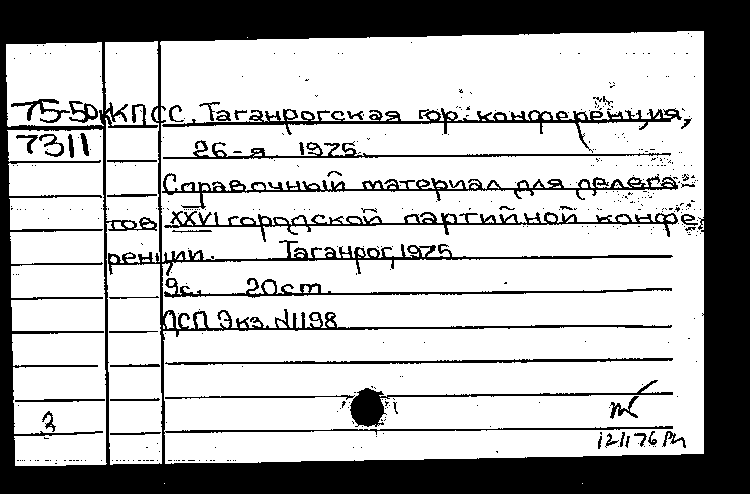 75-50к КПСС. Таганрогская гор. конференция,
7311 26-я 1975.
Справочный материал для делега-
тов XXVI городской партийной конфе
ренции. Таганрог, 1975
9с. 20 cm.
ДСП Экз. N1198
3